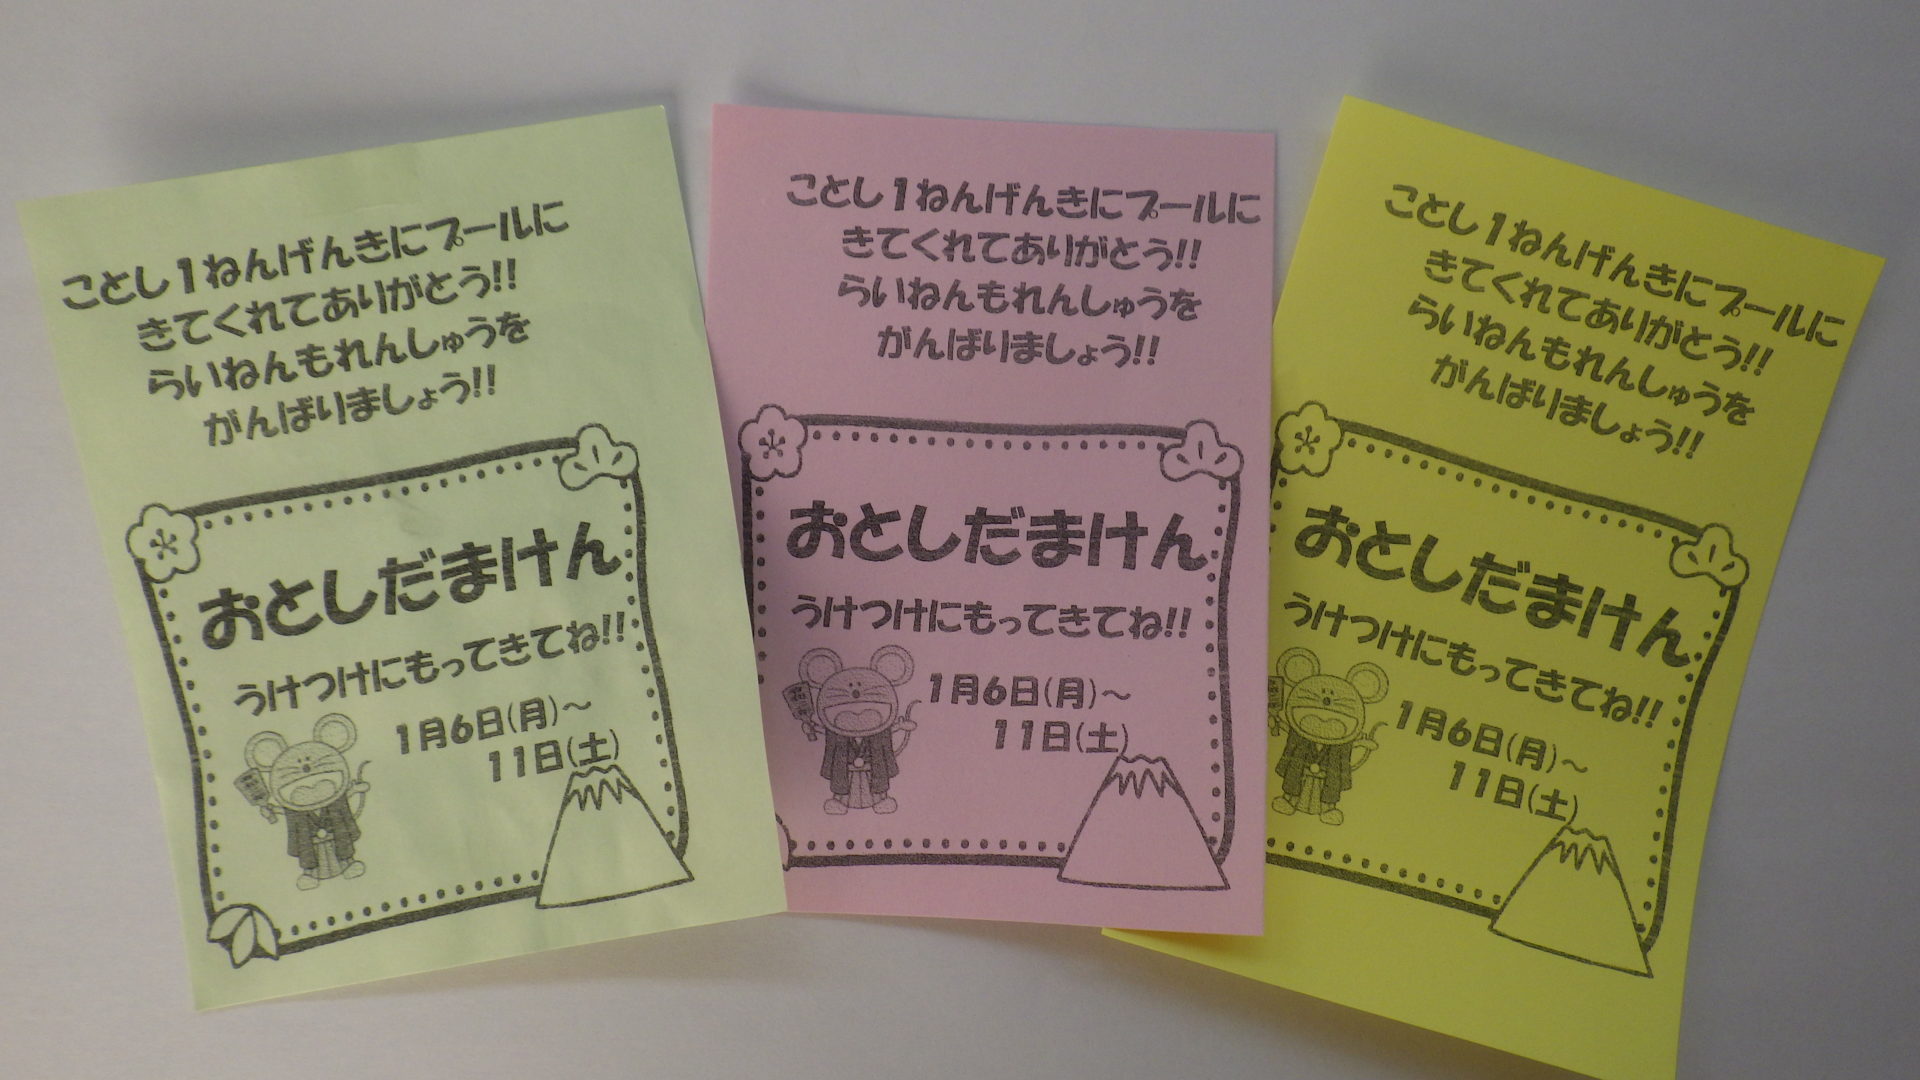 ことし1ねんげんきにプールに
きてくれてありがとう!!
らいねんもれんしゅうを
がんばりましょう!!
おとしだまけん
うけつけにもってきてね!!
1月6日(月)～
11日(土)
ことし1ねんげんきにプールに
きてくれてありがとう!!
らいねんもれんしゅうを
がんばりましょう!!
おとしだまけん
うけつけにもってきてね!!
1月6日(月)～
11日(土)
ことし1ねんげんきにプールに
きてくれてありがとう!!
らいねんもれんしゅうを
がんばりましょう!!
おとしだまけん
うけつけにもってきてね!!
1月6日(月)～
11日(土)